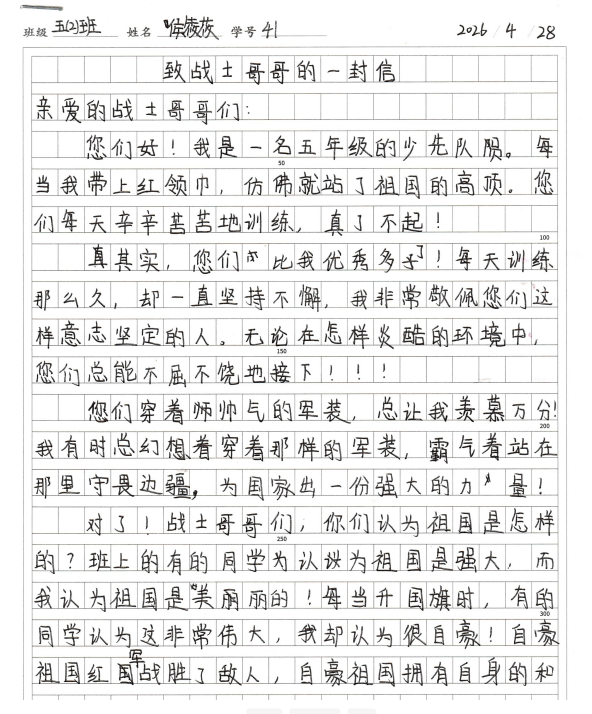 班级 五(2)班 姓名 侯绫苡 学号 41 2026 / 4 / 28
致战士哥哥的一封信
亲爱的战士哥哥们：
您们好！我是一名五年级的少先队员。每
50
当我带上红领巾，仿佛就站了祖国的高顶。您
们每天辛辛苦苦地训练，真了不起！
100
真其实，您们比我优秀多了！每天训练
那么久，却一直坚持不懈，我非常敬佩您们这
样意志坚定的人。无论在怎样炎酷的环境中，
150
您们总能不屈不饶地接下！！！
您们穿着帅气的军装，总让我羡慕万分！
200
我有时总幻想着穿着那样的军装，霸气着站在
那里守畏边疆。为国家出一份强大的力量！
对了！战士哥哥们，你们认为祖国是怎样
250
的？班上的有的同学为认为祖国是强大，而
我认为祖国是美丽丽的！每当升国旗时，有的
300
同学认为这非常伟大，我却认为很自豪！自豪
祖国红军战胜了敌人，自豪祖国拥有自身的和